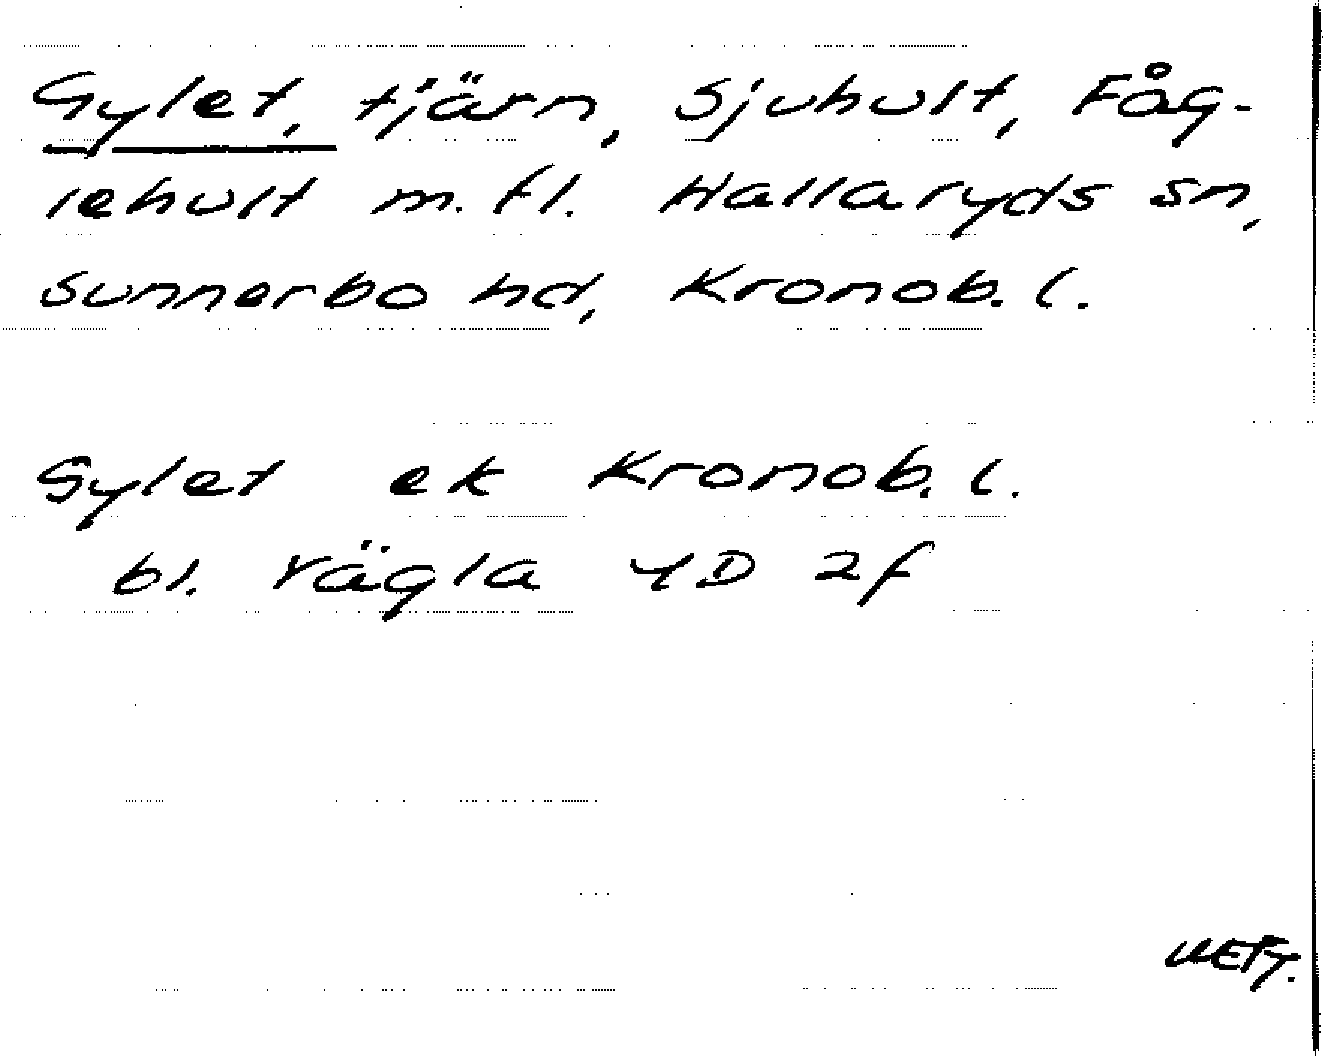 Gylet, tjärn, Sjuhult, Fåg-
lehult m. fl. Hallaryds sn,
Sunnerbo hd, Kronob. l.
Gylet ek Kronob. l.
bl. Vägla 4D 2f